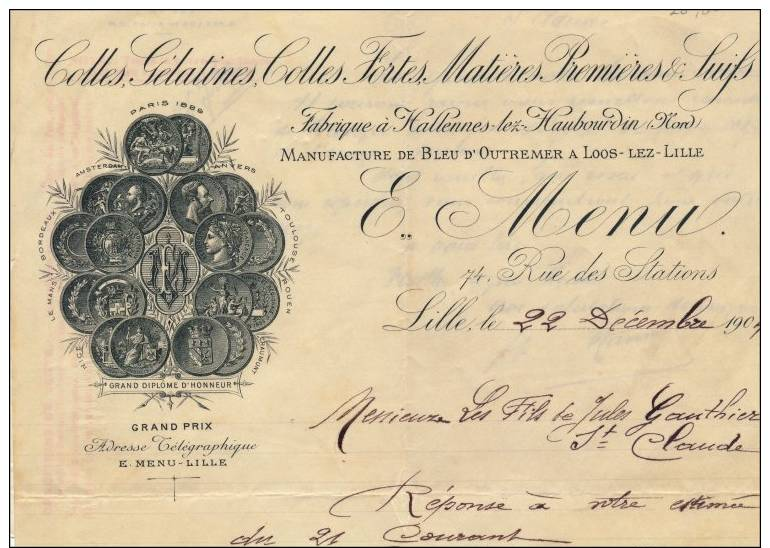 Colles, Gélatines, Colles Fortes, Matières Premières & Suifs
Fabrique à Hallennes-lez-Haubourdin (Nord)
MANUFACTURE DE BLEU D'OUTREMER A LOOS-LEZ-LILLE
E. Menu.
74, Rue des Stations
Lille, le 22 Décembre 190
PARIS 1889
AMSTERDAM
ANVERS
BORDEAUX
TOULOUSE
LE MANS
ROUEN
NICE
CHAUMONT
GRAND DIPLÔME D'HONNEUR
GRAND PRIX
Adresse Télégraphique
E. MENU-LILLE
Messieurs Les Fils de Jules Gauthier
St Claude
Réponse à votre estimée
du 21 Courant